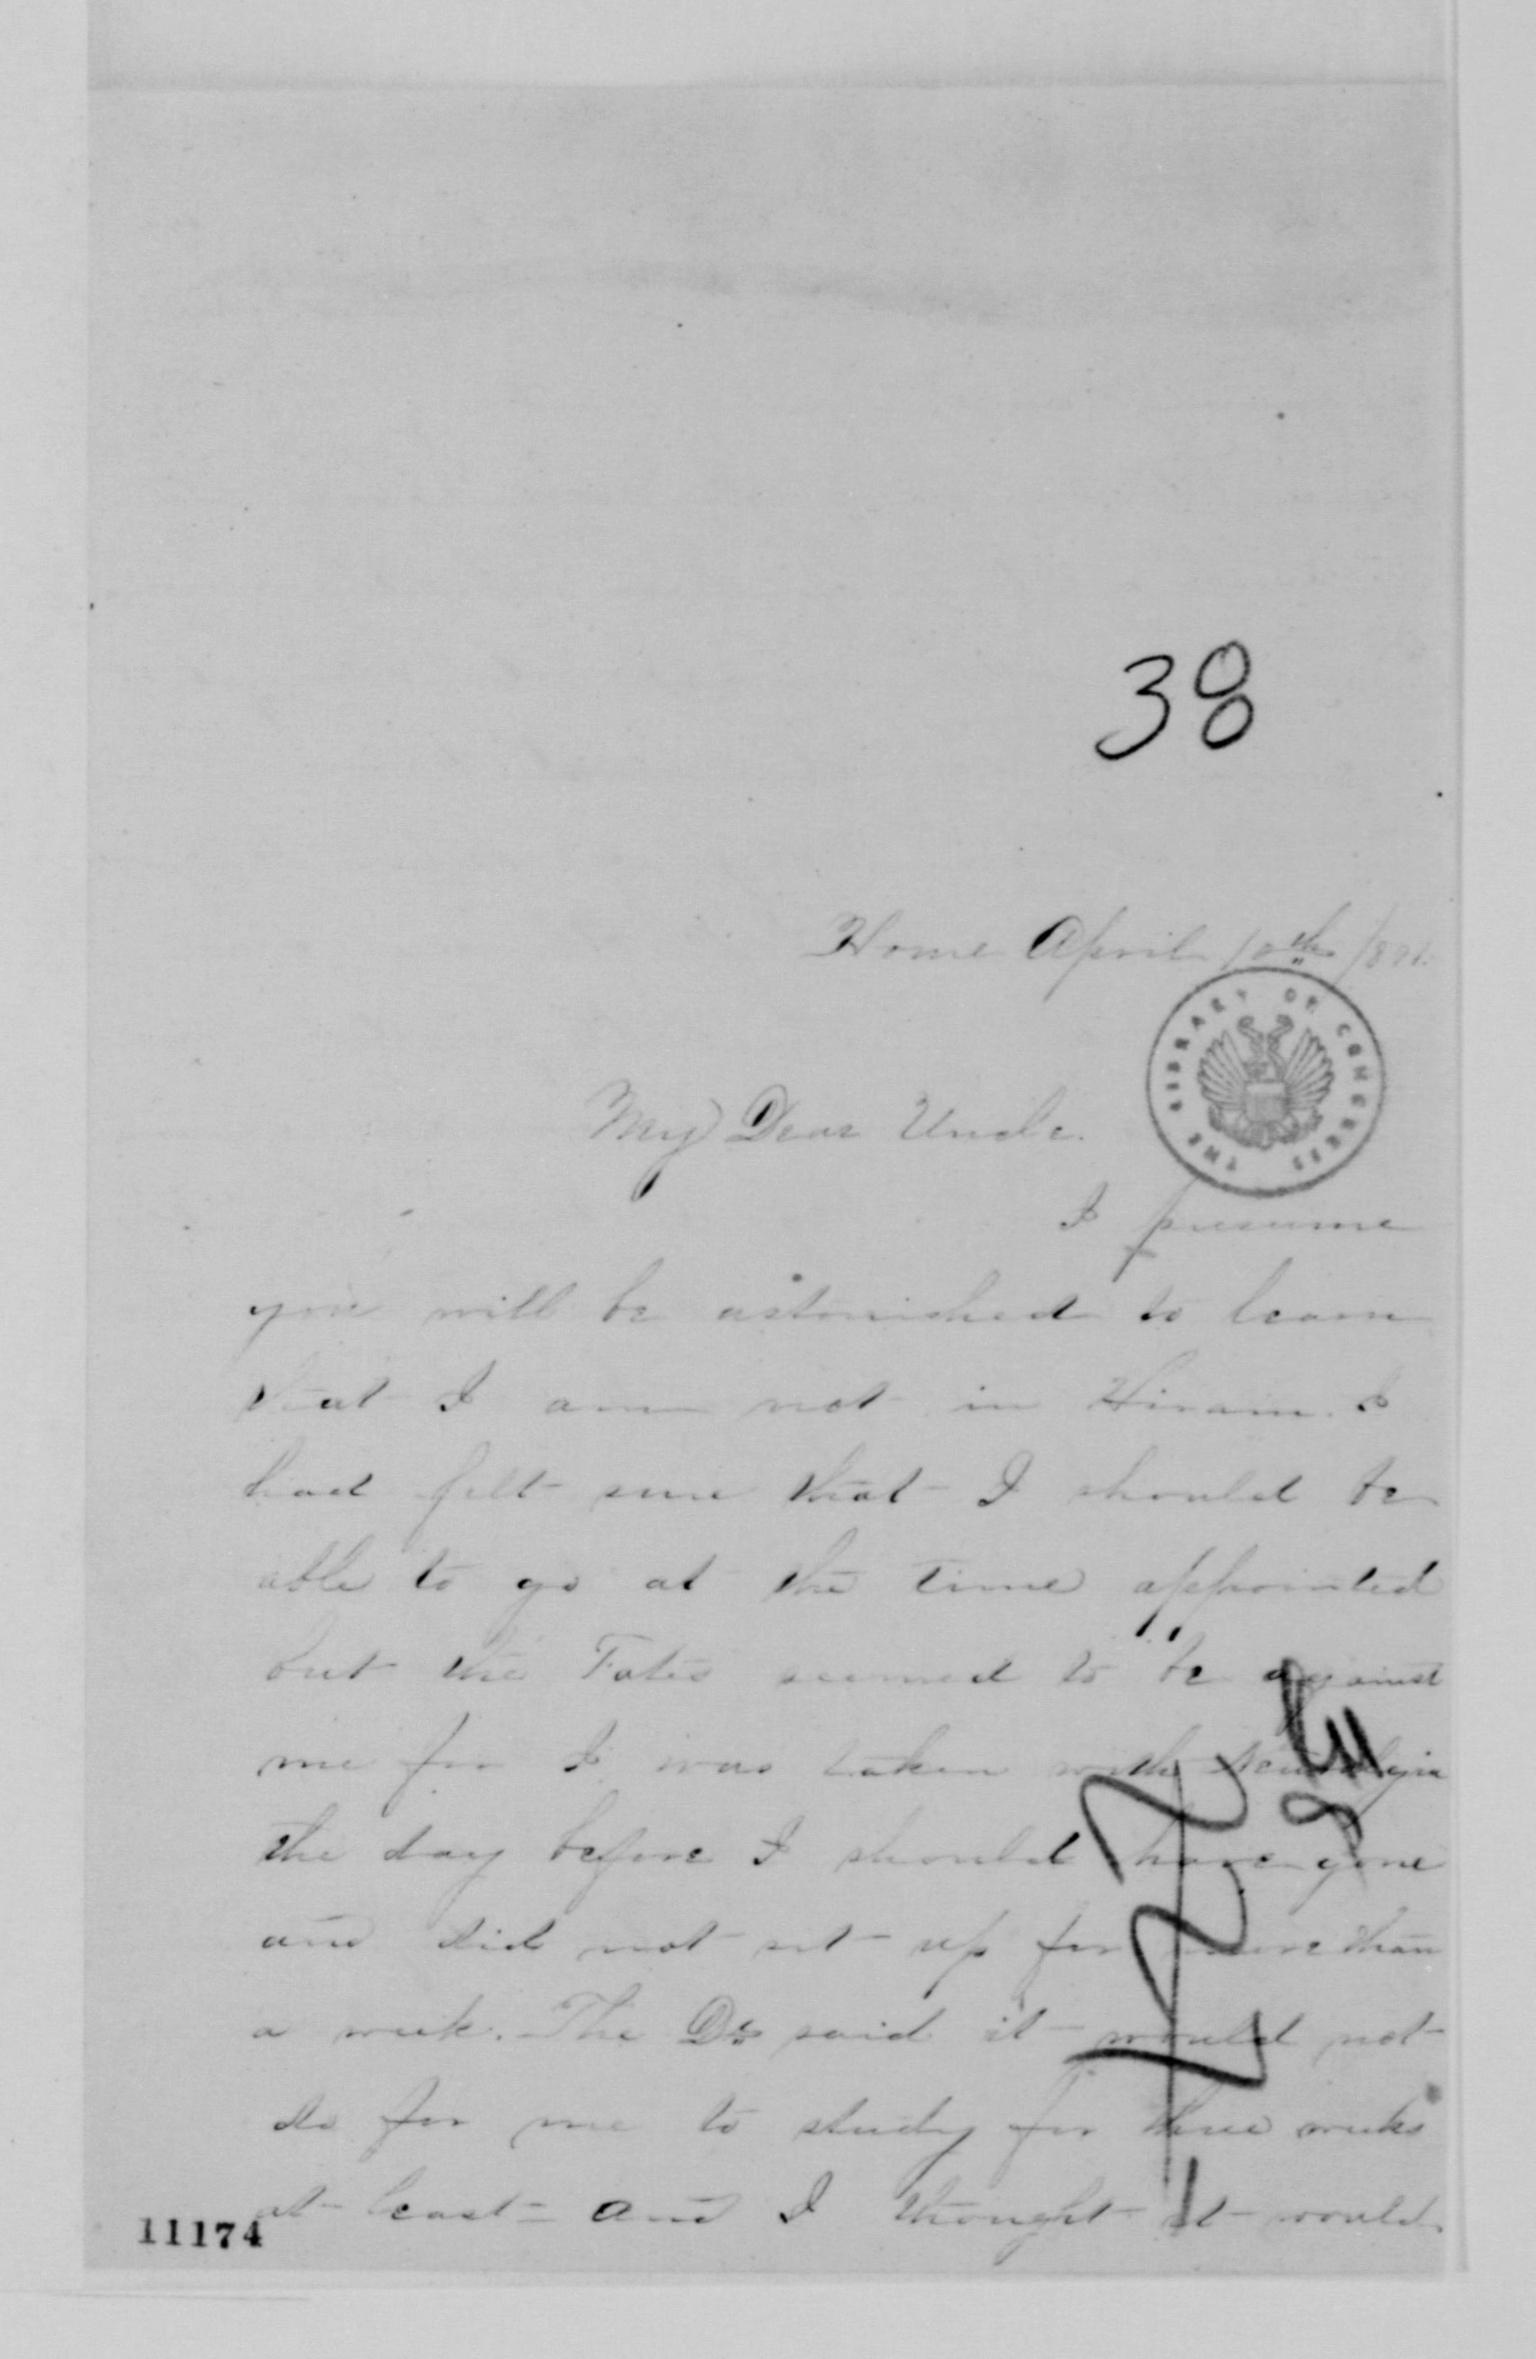 38
Home April 10th
THE LIBRARY OF CONGRESS
My Dear Uncle.
I presume
you will be astonished to learn
that I am not in Hiram. I
had felt sure that I should be
able to go at the time appointed
but the Fates seemed to be against
me for I was taken with neuralgia
the day before I should have gone
and did not sit up for more than
a week. The Dr said it would not
do for me to study for three weeks
at least - and I thought it would
11174